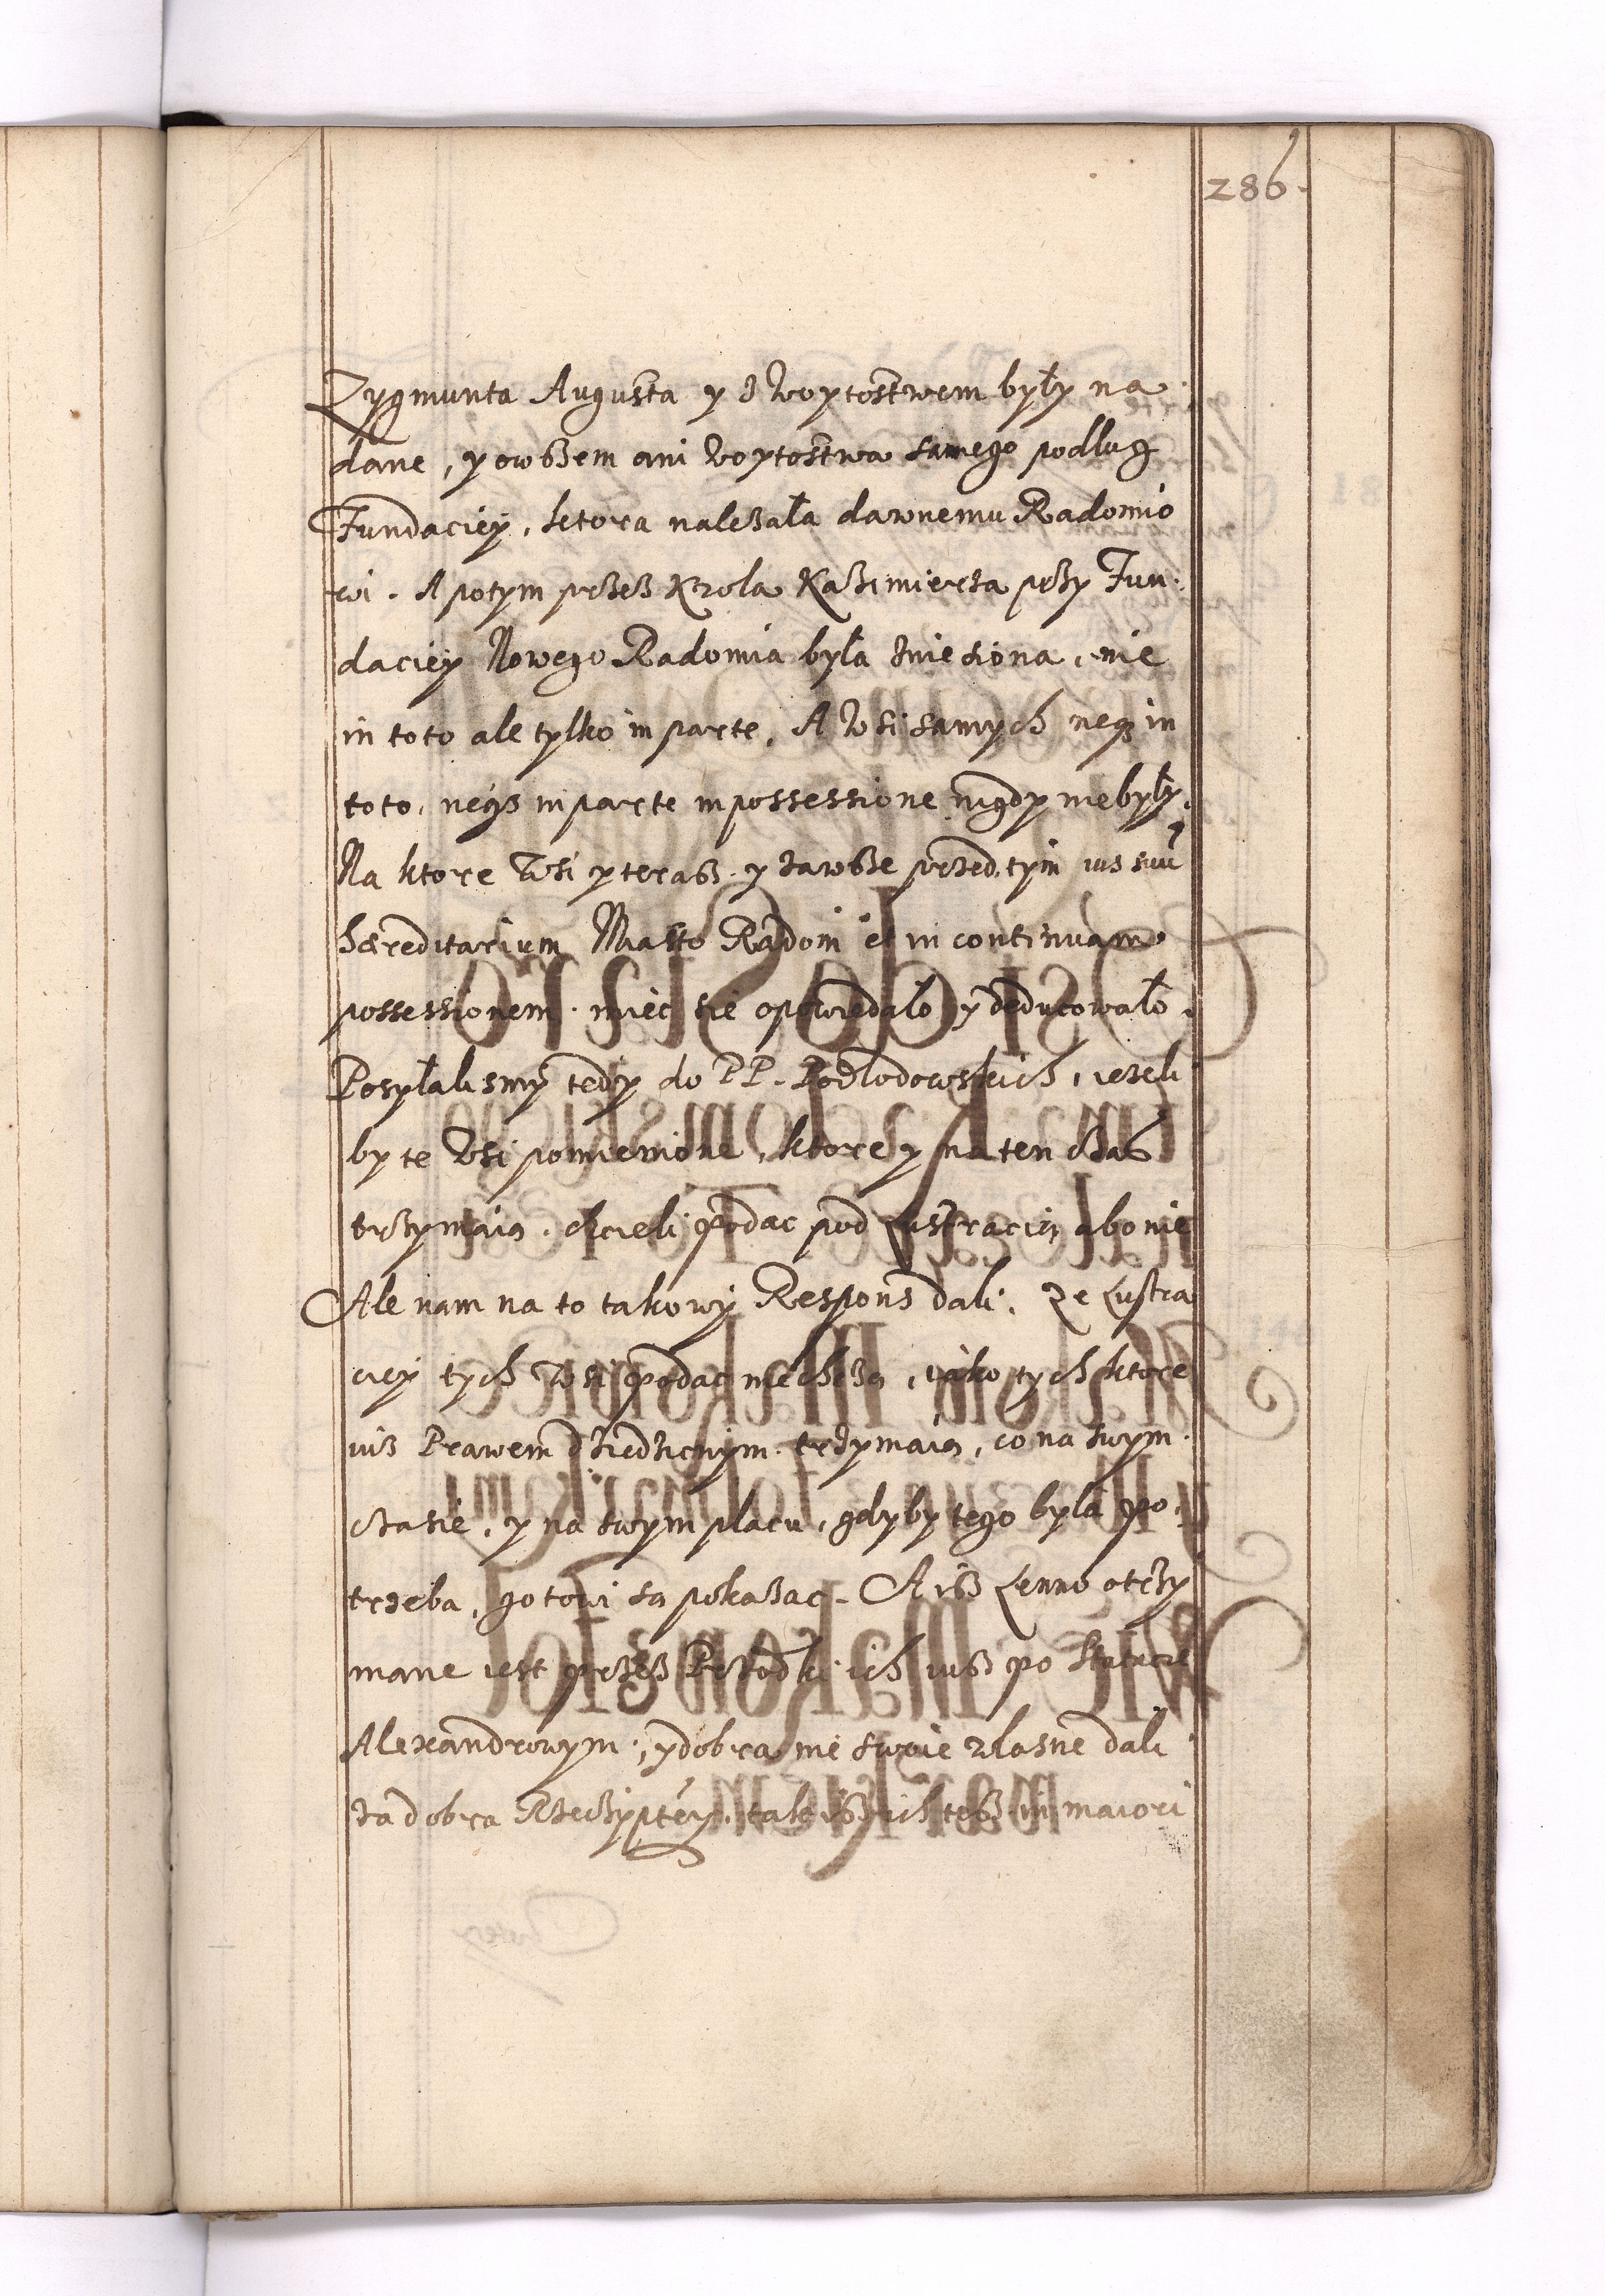 286.
Zygmunta Augusta y z Woytostwem były na
dane, y owßem ani Woytostwa samego podług
Fundaciey, ktora należała dawnemu Radomio
wi. A potym przeß Krola Kaźimierza przy Fun
daciey Nowego Radomia była znieśiona, nie
in toto ale tylko in parte. A Wsi samych neq3 in
toto, neq3 in parte in possessione nigdy niebyły.
Na ktore Wsi y teraß y zawße przed tym ius suu
hæreditarium Miasto Radom et in continuam
possessionem mieć sie opowiedało y deducowało.
Posyłalismy tedy do PP. Podlodowskich, ieżeli
by te Wsi pomienione, ktore y na ten czas
trzymaią, chcieli podac pod Lustracią abo nie
Ale nam na to takowy Respons dali, Ze Lustra
ciey tych Wsi podac niechczą, iako tych ktore
iuß Prawem dziedzicznym trzymaią, co na swym
czasie, y na swym placu, gdyby tego była po
trzeba, gotowi są pokazac. A iß Lenno otrzy
mane iest przeß Przodki ich iuß po Statucie
Alexandrowym, y dobra mi swoie własne dali
za dobra Rzeczyptey, tak iß ich teß in maiori